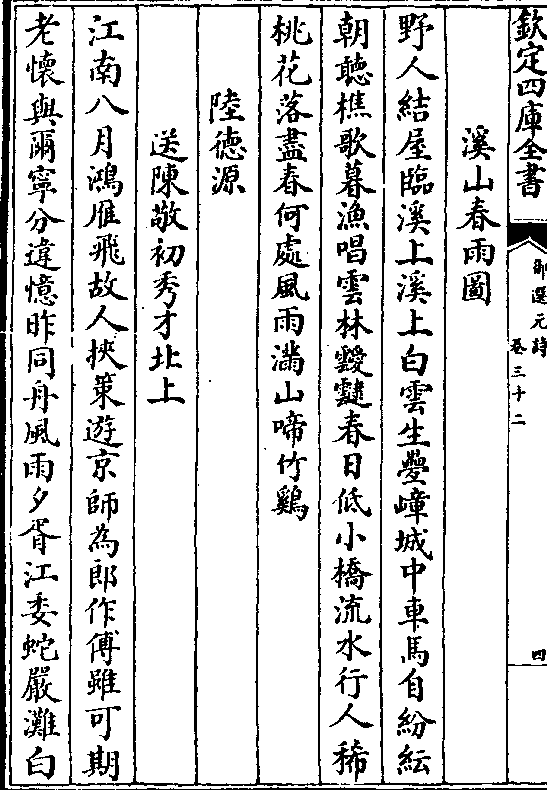 欽定四庫全書
御選元詩
卷三十二
四
溪山春雨圖
野人結屋臨溪上溪上白雲生疊嶂城中車馬自紛紜
朝聽樵歌暮漁唱雲林靉靆春日低小橋流水行人稀
桃花落盡春何處風雨滿山啼竹鷄
陸德源
送陳敬初秀才北上
江南八月鴻雁飛故人挾策遊京師為郎作傅雖可期
老懷與爾寧分違憶昨同舟風雨夕胥江委蛇嚴灘白